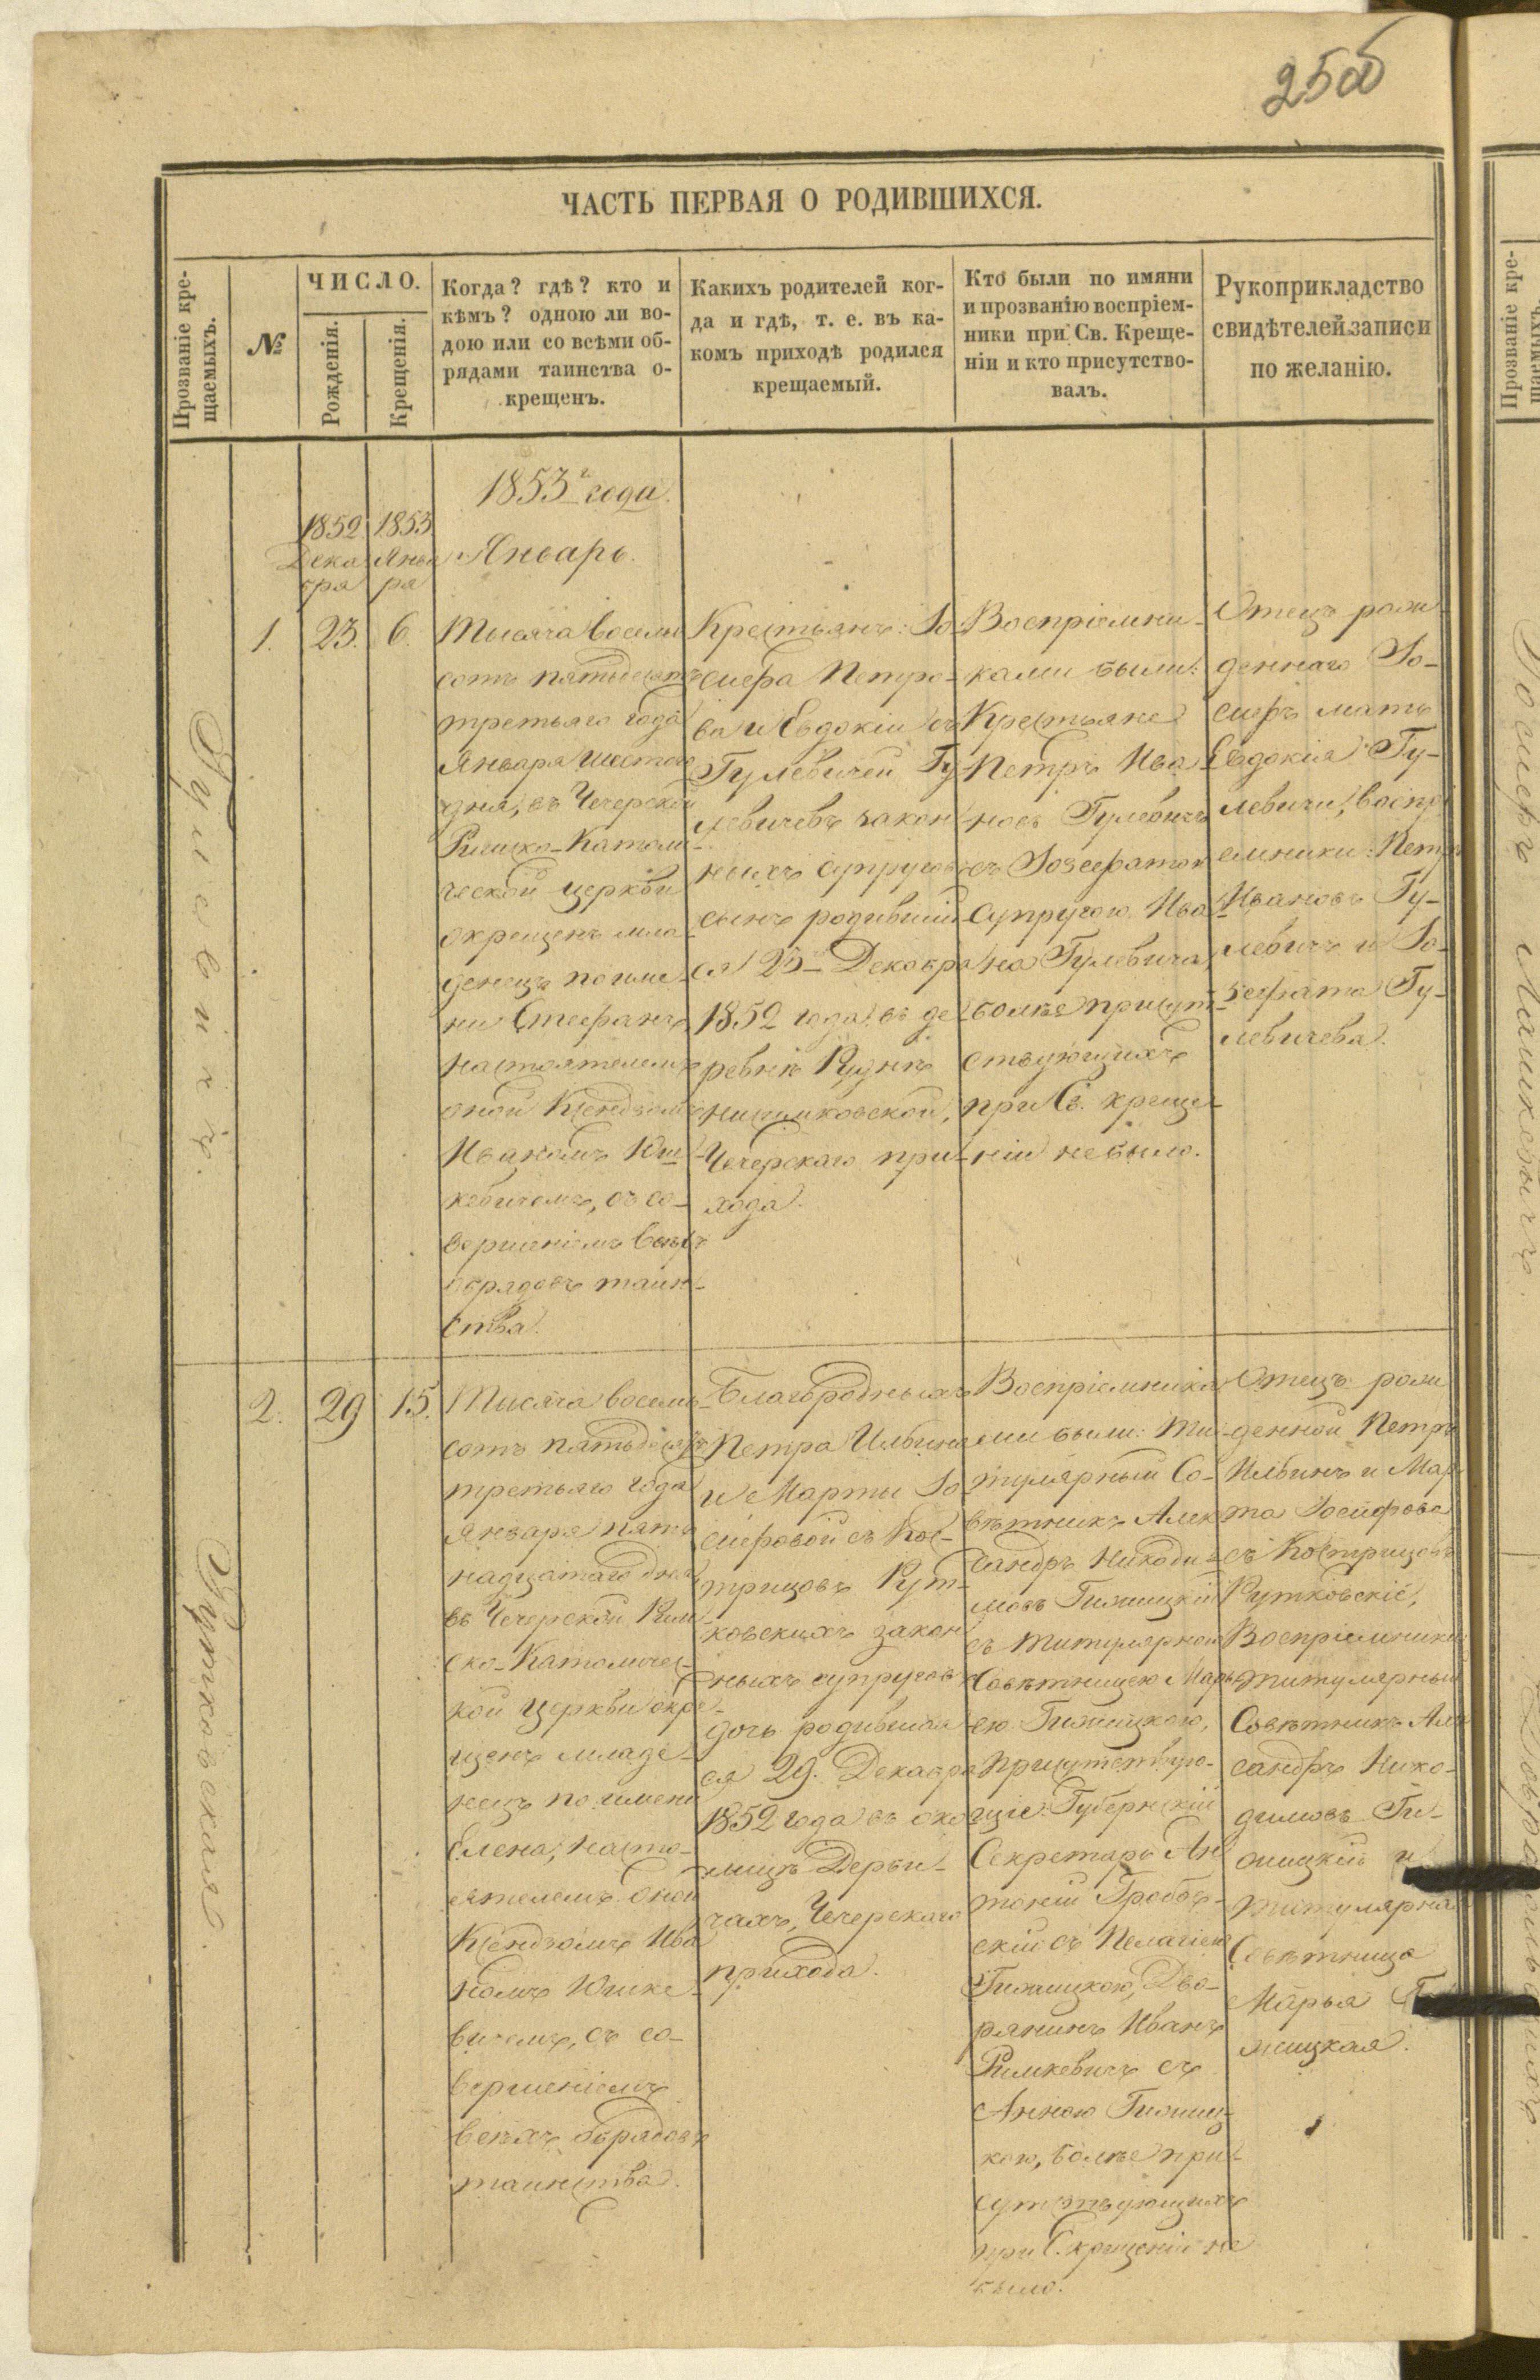 250б
ЧАСТЬ ПЕРВАЯ О РОДИВШИХСЯ.
Прозваніе кре-
щаемыхъ.
№
ЧИСЛО.
Рожденія.
Крещенія.
Когда? гдѣ? кто и
кѣмъ? одною ли во-
дою или со всѣми об-
рядами таинства о-
крещенъ.
Какихъ родителей ког-
да и гдѣ, т. е. въ ка-
комъ приходѣ родился
крещаемый.
Кто были по имяни
и прозванію воспріем-
ники при Св. Креще-
ніи и кто присутство-
валъ.
Рукоприкладство
свидѣтелей записи
по желанію.
1853 года.
1852
Дека
бря
1853
Янва
ря
Январь.
Гулевичъ.
1.
23.
6.
Тысяча восемь
сотъ пятьдесятъ
третьяго года
Января шестаго
дня, въ Чечерской
Римско-Католи-
ческой церкви
окрещенъ мла-
денецъ по име-
ни Стефанъ,
настоятелемъ
оной Ксендзомъ
Иваномъ Юш-
кевичемъ, съ со-
вершеніемъ всѣхъ
обрядовъ таин-
ства.
Крестьянъ: Іо-
сифа Петро-
ва и Евдокіи съ
Гулевичей Гу-
левичевъ закон-
ныхъ супруговъ
сынъ родивший-
ся 23 Декабря
1852 года въ де-
ревнѣ Руднѣ
Чечерскаго при-
хода.
Воспріемни-
ками были:
Крестьяне
Петръ Ива-
новъ Гулевичъ
съ Іозефатою
супругою Ива-
на Гулевича,
болѣе присут-
ствующихъ
при Св. креще-
ніи небыло.
Отецъ рож-
деннаго Іо-
сифъ мать
Евдокія Гу-
левичи, воспрі
емники: Петръ
Ивановъ Гу-
левичъ и Іо-
зефата Гу-
левичева.
Рутковская.
2.
29
15.
Тысяча восемь-
сотъ пятьдесятъ
третьяго года
Января пят-
надцатаго дня
въ Чечерской Рим-
ско-Католичес-
кой церкви окре-
щенъ младе-
нецъ по имени
Елена, насто-
ятелемъ оной
Ксендзомъ Ива
номъ Юшке-
вичемъ, съ со-
вершеніемъ
всѣхъ обрядовъ
таинства.
Благородныхъ
Петра Ильина
и Марты Іо-
сифовой съ Кос-
трицовъ Рут-
ковскихъ закон
ныхъ супруговъ
дочь родившая
ся 29. Декабря
1852 года въ око
лицѣ Дерби-
чахъ, Чечерскаго
прихода.
Воспріемника
ми были: Ти-
тулярный Со-
вѣтникъ Алек
сандръ Никоди-
мовъ Гижицкій
съ титулярною
Совѣтницею Марь
ею Гижицкою,
присутствую-
щіе: Губернскій
Секретарь Ан
тоній
скій съ Пелагіею
Гижицкою, Дво-
рянинъ Иванъ
Римкевичъ съ
Анною Гижиц-
кою, болѣе при-
сутствующихъ
при С. крещеніи не
было.
Отецъ рож
денной Петръ
Ильинъ и Мар
та Іосифова
съ Кострицовъ
Рутковскіе,
Воспріемники
титулярный
Совѣтникъ Алек
сандръ Нико-
димовъ Ги-
жицкій и
титулярная
Совѣтница
Марья Ги
жицкая.
Прозваніе кре-
щаемыхъ.